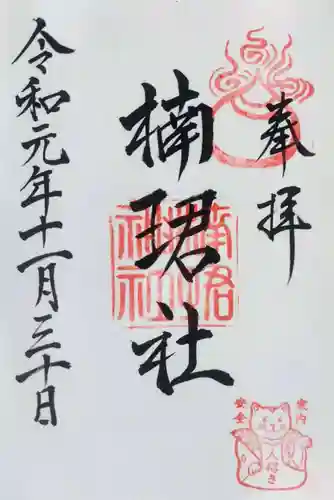 奉拝
楠珺社
令和元年十一月三十日
楠珺社
家内
安全
人招き